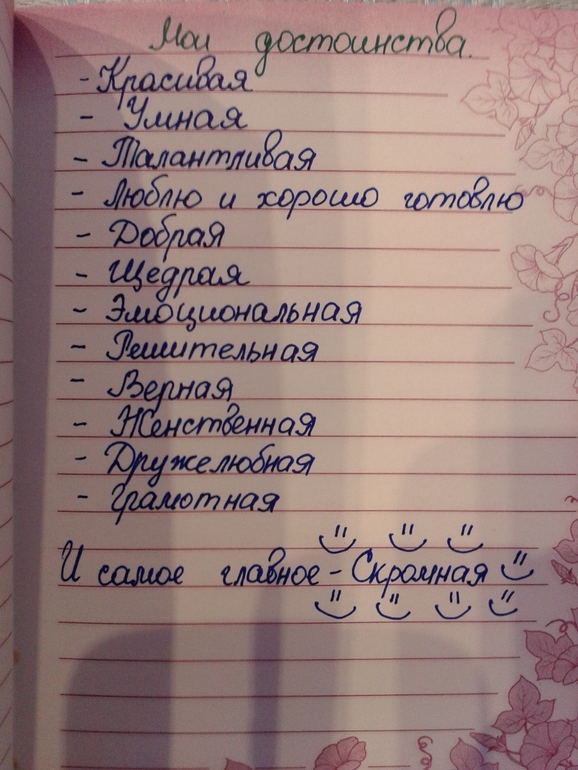 Мои достоинства.
- Красивая
- Умная
- Талантливая
- Люблю и хорошо готовлю
- Добрая
- Щедрая
- Эмоциональная
- Решительная
- Верная
- Женственная
- Дружелюбная
- Грамотная
И самое главное - Скромная